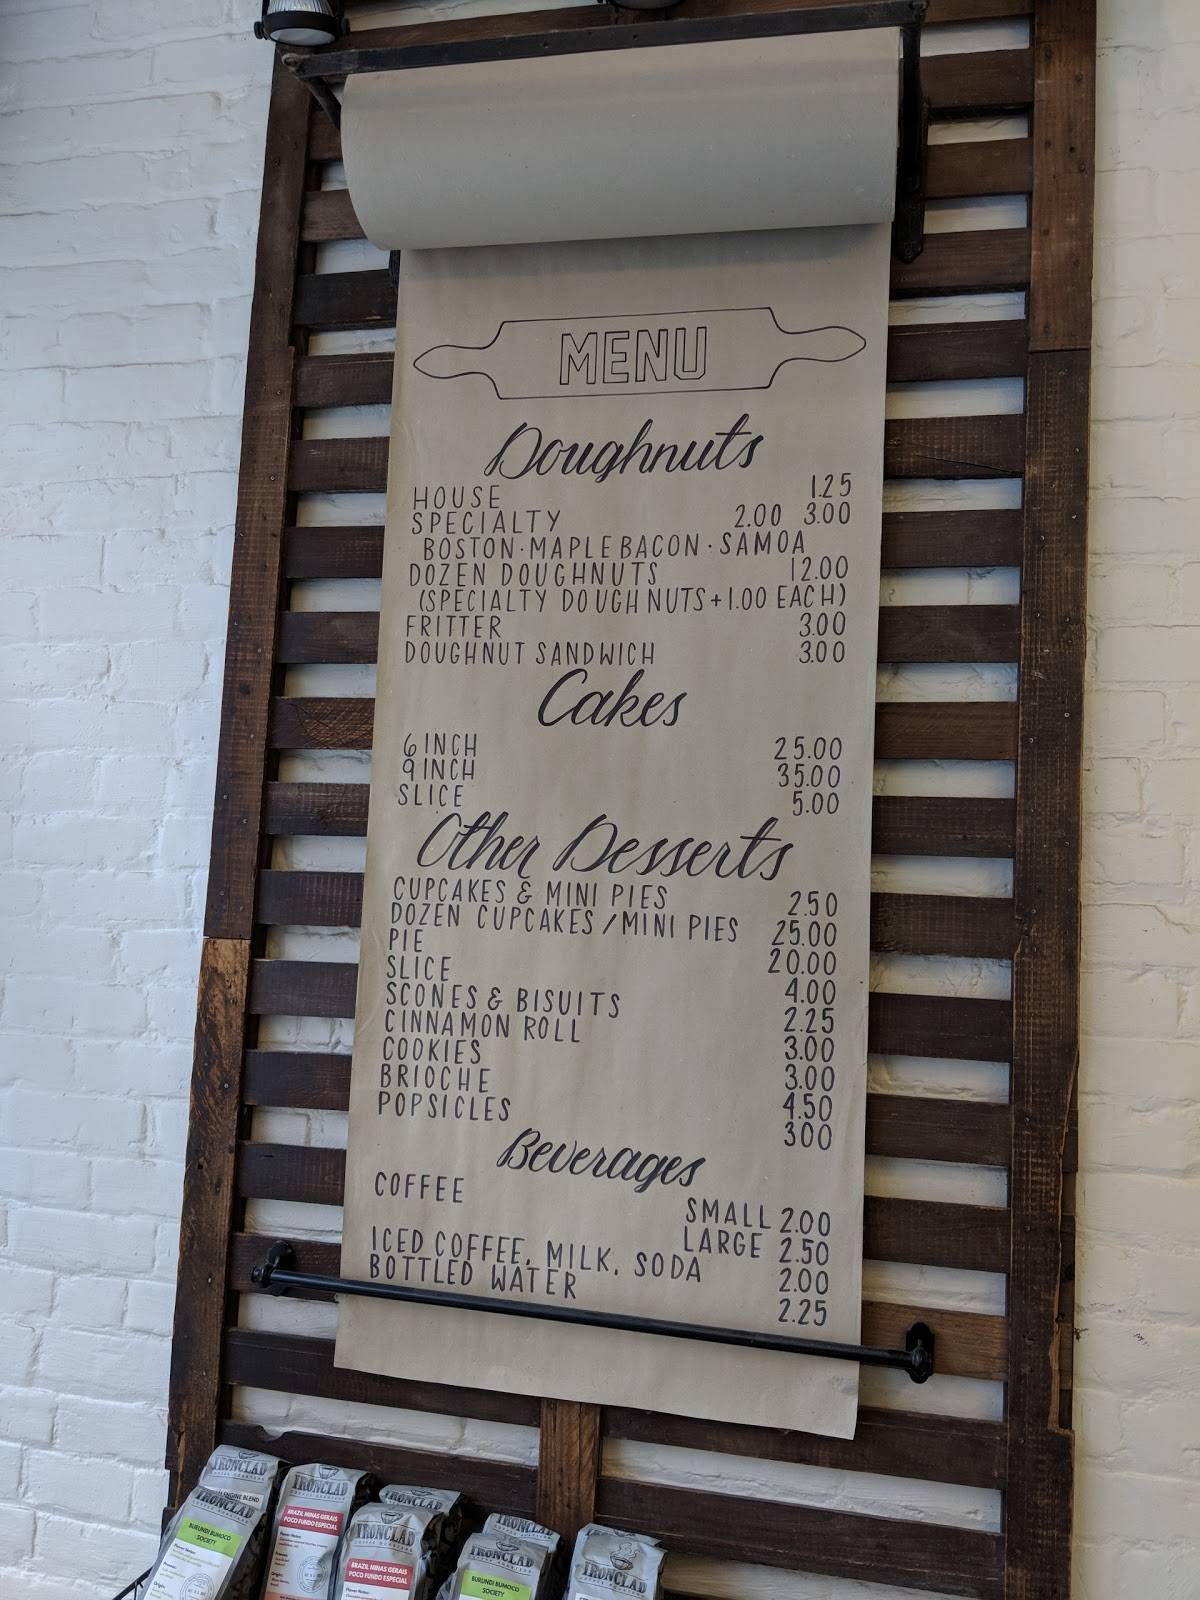 MENU
Doughnuts
HOUSE 1.25
SPECIALTY 2.00 3.00
BOSTON·MAPLE BACON·SAMOA
DOZEN DOUGHNUTS 12.00
(SPECIALTY DOUGHNUTS+1.00 EACH)
FRITTER 3.00
DOUGHNUT SANDWICH 3.00
Cakes
6 INCH 25.00
9 INCH 35.00
SLICE 5.00
Other Desserts
CUPCAKES & MINI PIES 2.50
DOZEN CUPCAKES/MINI PIES 25.00
PIE 20.00
SLICE 4.00
SCONES & BISUITS 2.25
CINNAMON ROLL 3.00
COOKIES 3.00
BRIOCHE 4.50
POPSICLES 300
Beverages
COFFEE SMALL 2.00
LARGE 2.50
ICED COFFEE, MILK, SODA 2.00
BOTTLED WATER 2.25
IRONCLAD
ENGINE BLEND
IRONCLAD
BURUNDI BUMOCO
SOCIETY
IRONCLAD
BRAZIL MINAS GERAIS
POCO FUNDO ESPECIAL
IRONCLAD
IRONCLAD
BRAZIL MINAS GERAIS
POCO FUNDO ESPECIAL
IRONCLAD
IRONCLAD
BURUNDI BUMOCO
SOCIETY
IRONCLAD